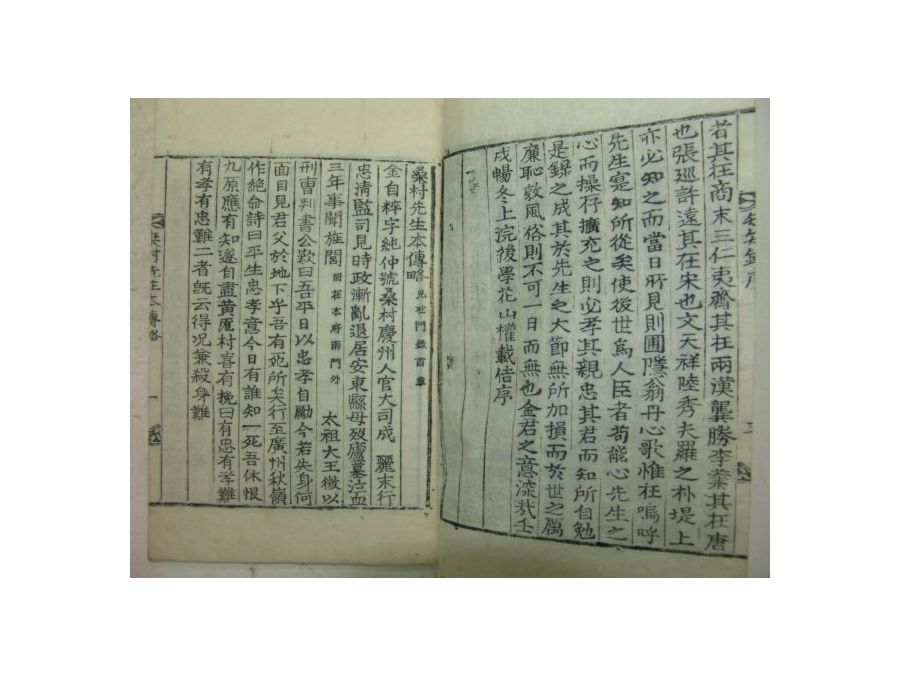 者其在商末三仁夷齊其在兩漢龔勝李業其在唐
也張巡許遠其在宋也文天祥陸秀夫羅之朴堤上
亦必知之而當日所見則圃隱翁丹心歌惟在嗚呼
先生寔知所從矣使後世爲人臣者苟能心先生之
心而操存擴充之則必孝其親忠其君而知所自勉
是錄之成其於先生之大節無所加損而於世之厲
廉恥敦風俗則不可一日而無也金君之意深哉壬
戌暢冬上浣後學花山權載佶序
桑村先生本傳略 見杜門錄首章
金自粹字純仲號桑村慶州人官大司成 麗末行
忠淸監司見時政漸亂退居安東縣母歿廬墓泣血
三年事聞旌閭 閭在本府南門外 太祖大王徵以
刑曹判書公歎曰吾平日以忠孝自勵今若失身何
面目見君父於地下乎吾有死所矣行至廣州秋嶺
作絶命詩曰平生忠孝意今日有誰知一死吾休恨
九原應有知遂自盡黄厖村喜有挽曰有忠有孝難
有孝有忠難二者旣云得況兼殺身難
桑村先生本傳略 一